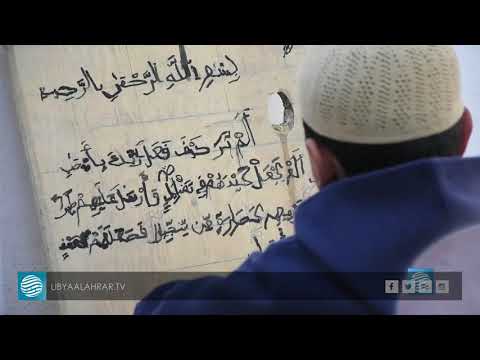 بسم الله الرحمن الرحيم
ألم تر كيف فعل ربك بأصحب
ألم يجعل كيدهم في تضليل وأرسل عليهم طير
بحجارة من سجيل فجعلهم كعصف
LIBYAALAHRAR.TV